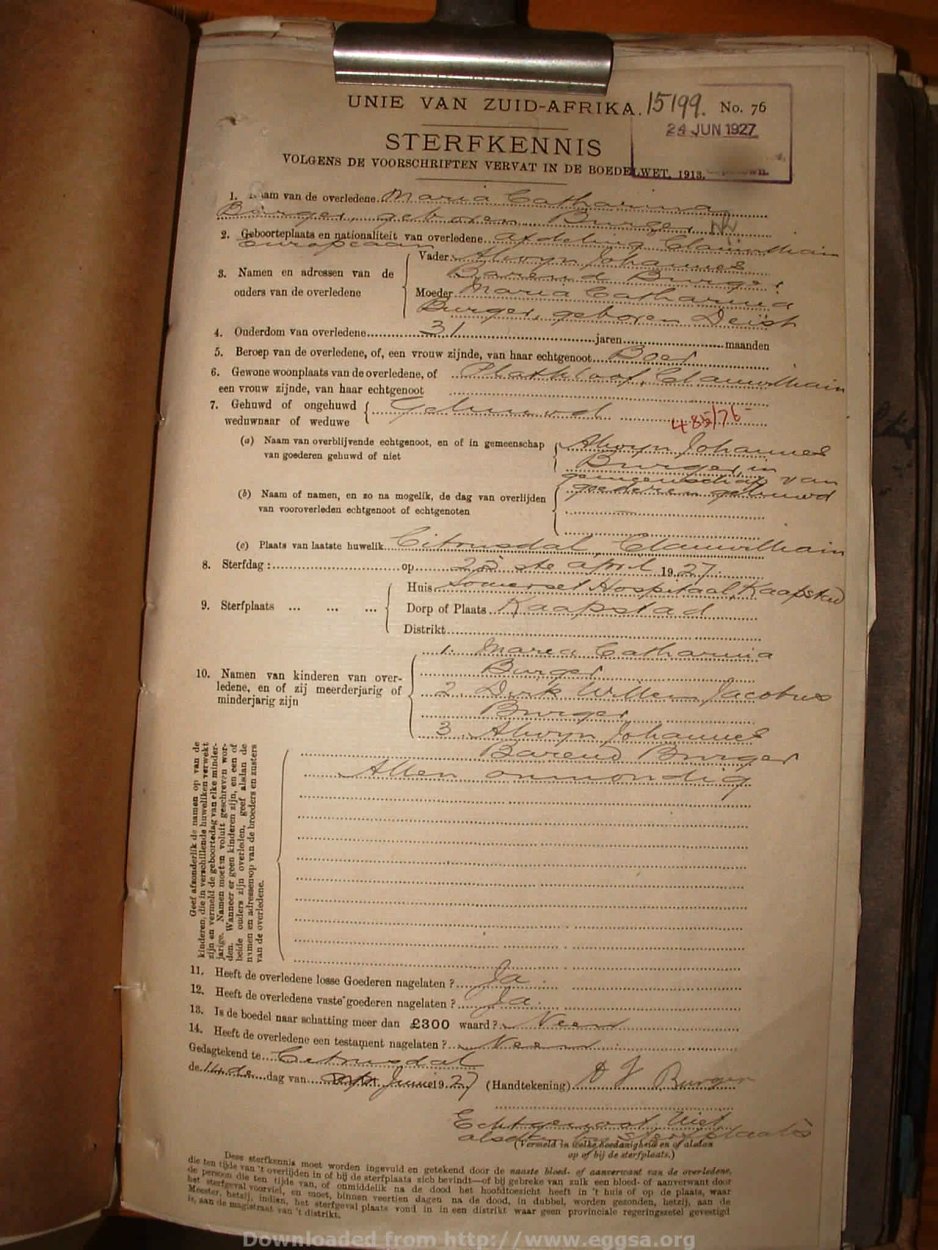 UNIE VAN ZUID-AFRIKA. 15199. No. 76
24 JUN 1927
STERFKENNIS
VOLGENS DE VOORSCHRIFTEN VERVAT IN DE BOEDELWET, 1913.
1. Naam van de overledene Maria Catharina
Burger, geboren Burger
2. Geboorteplaats en nationaliteit van overledene Afdeling Clanwilliam
Europeaan
3. Namen en adressen van de ouders van de overledene
Vader Alwyn Johannes
Barend Burger
Moeder Maria Catharina
Burger, geboren Deist
4. Ouderdom van overledene 31 jaren maanden
5. Beroep van de overledene, of, een vrouw zijnde, van haar echtgenoot Boer
6. Gewone woonplaats van de overledene, of Platkloof, Clanwilliam
een vrouw zijnde, van haar echtgenoot
7. Gehuwd of ongehuwd Gehuwd
weduwnaar of weduwe 485/76
(a) Naam van overblijvende echtgenoot, en of in gemeenschap van goederen gehuwd of niet
Alwyn Johannes
Burger, in
gemeenschap van
goederen gehuwd
(b) Naam of namen, en zo na mogelik, de dag van overlijden
van vooroverleden echtgenoot of echtgenoten
(c) Plaats van laatste huwelik Citrusdal, Clanwilliam
8. Sterfdag: op 22ste April 1927
9. Sterfplaats ... ... ...
Huis Somerset Hospitaal, Kaapstad
Dorp of Plaats Kaapstad
Distrikt
10. Namen van kinderen van overledene, en of zij meerderjarig of minderjarig zijn
1. Maria Catharina
Burger
2. Dirk Willem Jacobus
Burger
3. Alwyn Johannes
Barend Burger
Allen onmondig
Geef afzonderlik de namen op van de
kinderen, die in verschillende huweliken verwekt
zijn en vermeld de geboortedag van elke minderjarige.
Namen moeten voluit geschreven worden.
Wanneer er geen kinderen zijn, en een of
beide ouders zijn overleden, geef alsdan de
namen en adressen op van de broeders en zusters
van de overledene.
11. Heeft de overledene losse Goederen nagelaten? Ja
12. Heeft de overledene vaste goederen nagelaten? Ja
13. Is de boedel naar schatting meer dan £300 waard? Neen
14. Heeft de overledene een testament nagelaten? Neen
Gedagtekend te Citrusdal
de 14de dag van Junie 1927 (Handtekening) A J Burger
Echtgenoot, Niet
alsdan op sterfplaats
(Vermeld in welke hoedanigheid en of alsdan
op of bij de sterfplaats.)
Deze sterfkennis moet worden ingevuld en getekend door de naaste bloed- of aanverwant van de overledene,
die ten tijde van 't overlijden in of bij de sterfplaats zich bevindt—of bij gebreke van zulk een bloed- of aanverwant door
de persoon die ten tijde van, of onmiddelik na de dood het hoofdtoezicht heeft in 't huis of op de plaats, waar
het sterfgeval voorviel, en moet, binnen veertien dagen na de dood, in dubbel, worden gezonden, hetzij, aan de
Meester, hetzij, indien, het sterfgeval plaats vond in in een distrikt waar geen provinciale regeringszetel gevestigd
is, aan de magistraat van 't distrikt.
Downloaded from http://www.eggsa.org